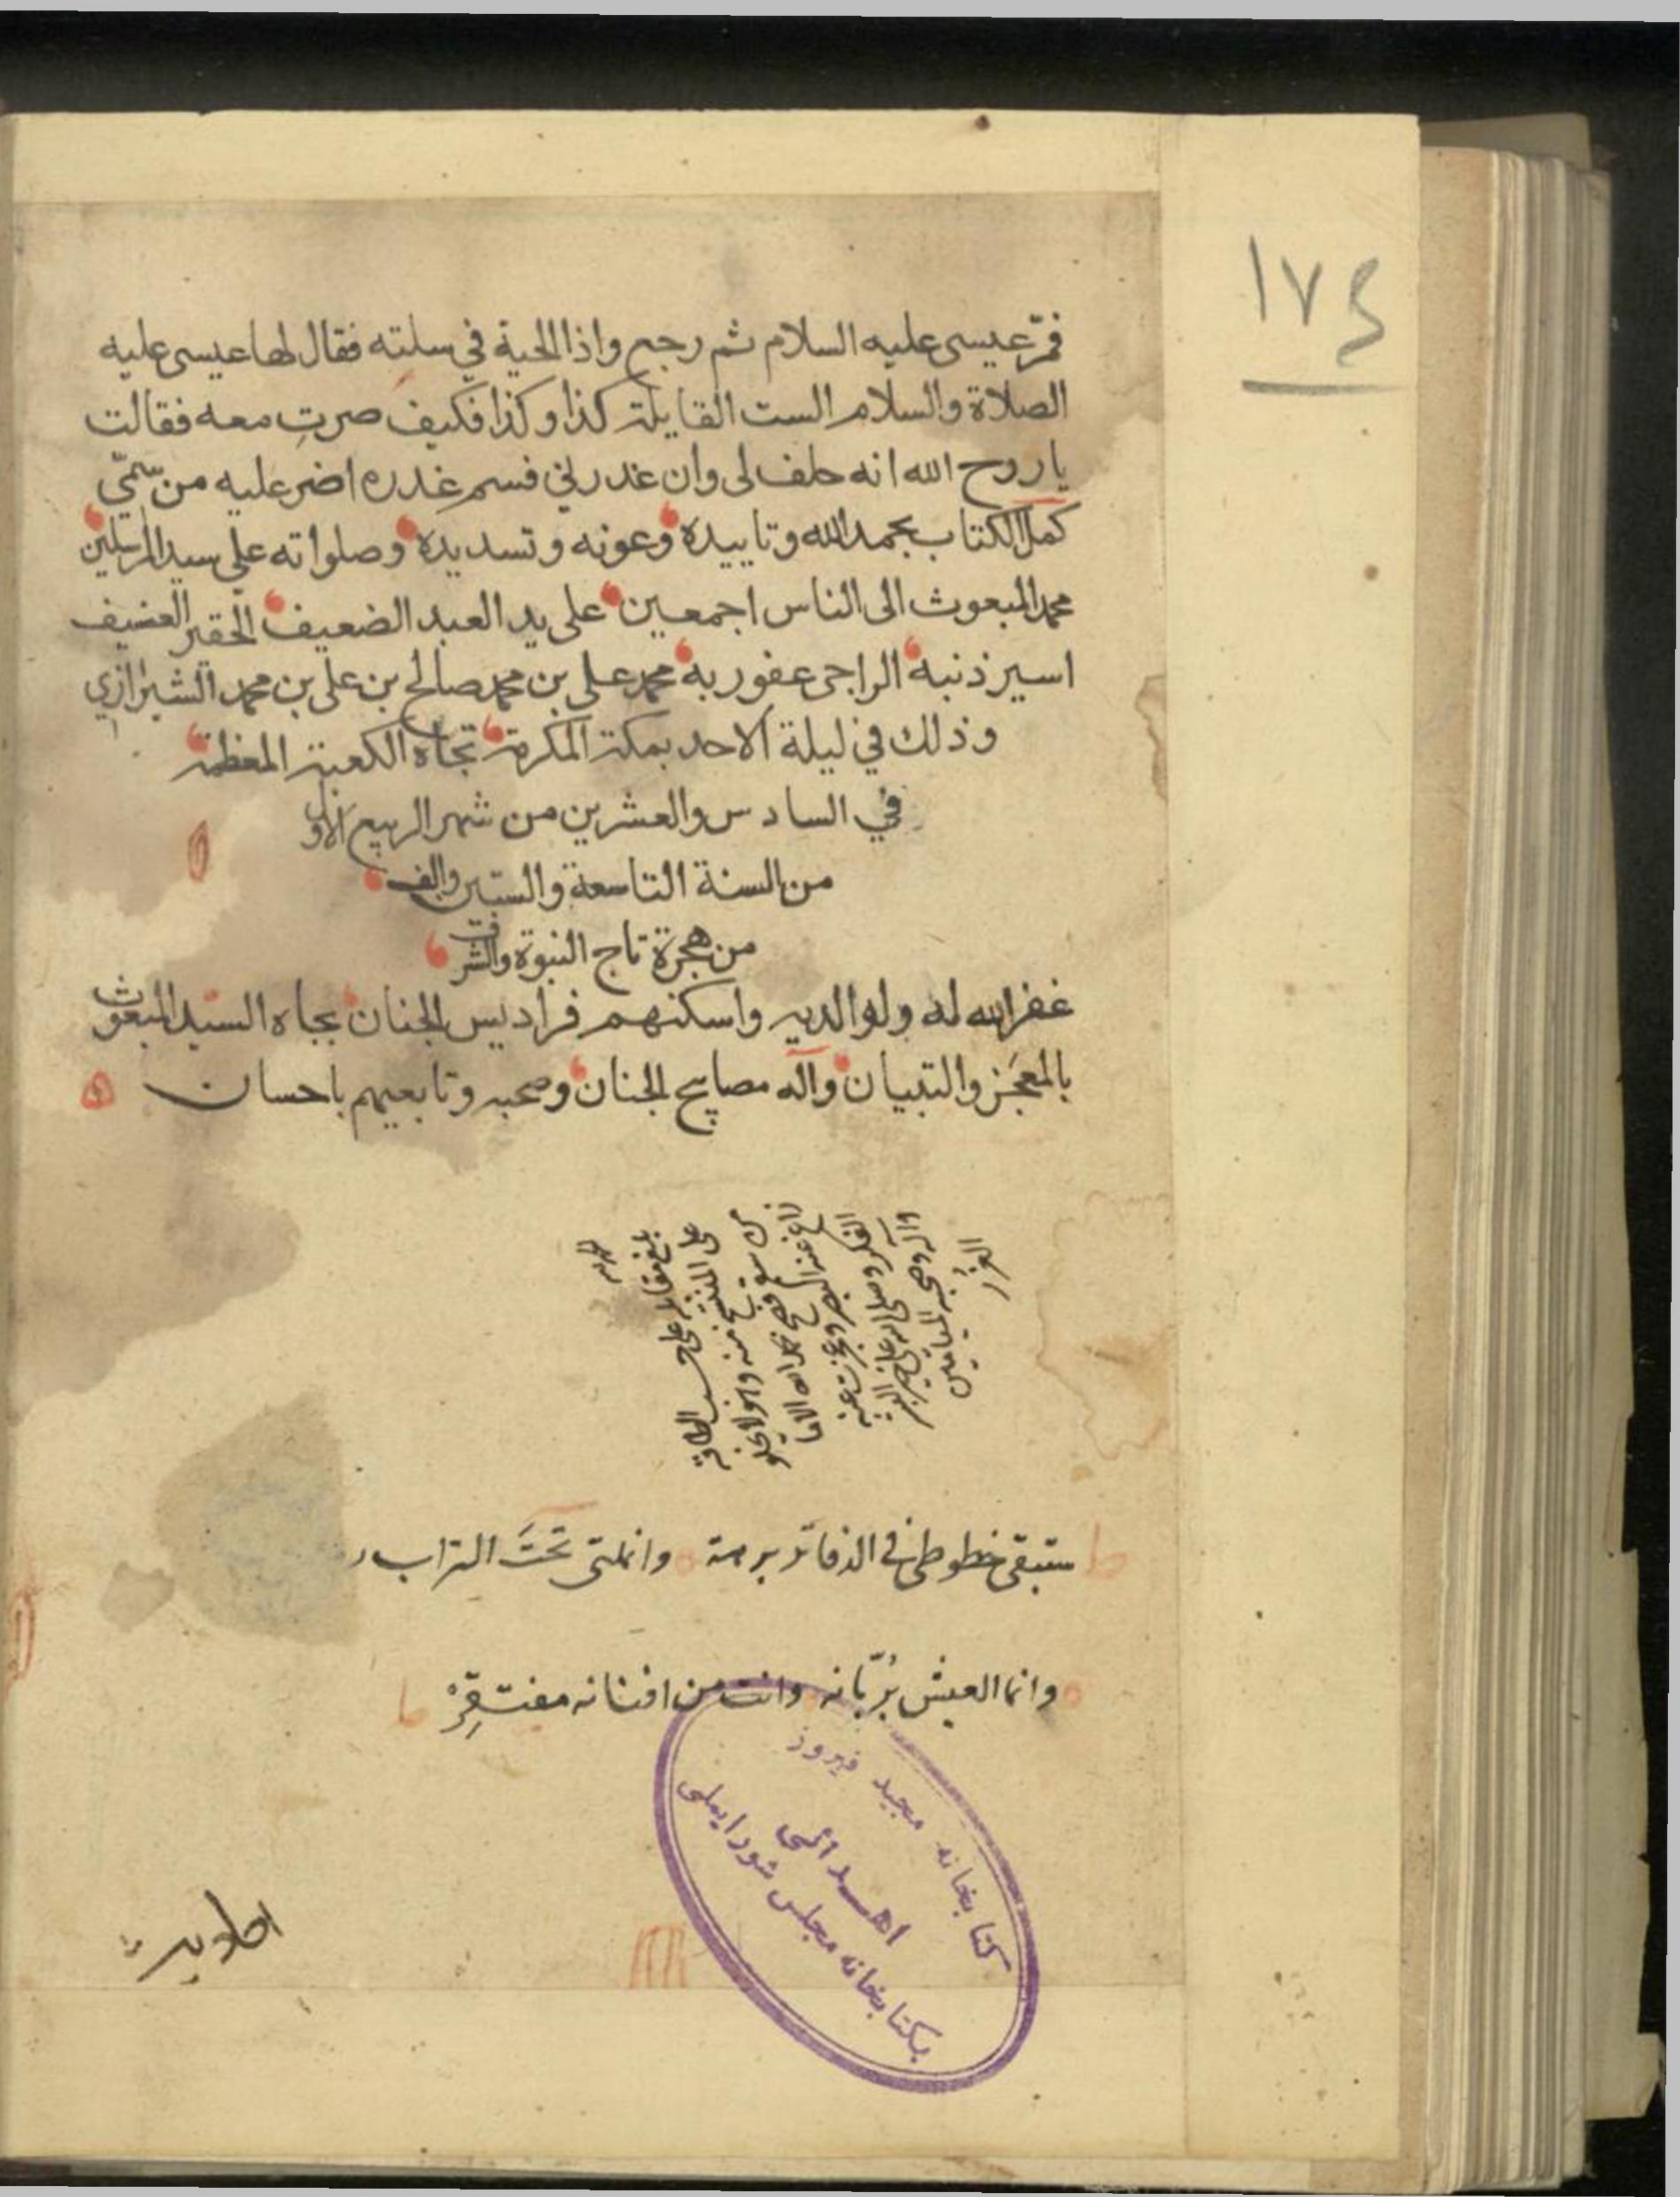 ١٧٤
فمرّ عيسى عليه السلام ثم رجع واذا الحية في سلته فقال لها عيسى عليه
الصلاة والسلام الست القايلة كذا وكذا فكيف صرتِ معه فقالت
يا روح الله انه حلف لي وان غدر لي فسم غدره اضر عليه من سمّي
كمل الكتاب بحمد الله وتاييده وعونه وتسديده وصلواته على سيد المرسلين
محمد المبعوث الى الناس اجمعين على يد العبد الضعيف الحقير
اسير ذنبه الراجى عفو ربه محمد على بن محمد صالح بن على بن محمد الشيرازي
وذلك في ليلة الاحد بمكة المكرمة تجاه الكعبة المعظمة
في السادس والعشرين من شهر الربيع الاول
من السنة التاسعة والستين والف
من هجرة تاج النبوة والشرف
غفر الله له ولوالديه واسكنهم فراديس الجنان بجاه السيد المبعوث
بالمعجز والتبيان وآله مصابيح الجنان وصحبه وتابعيهم باحسان
بلغ مقابلة على حسب الطاقة
على المنتسخ منه وهو لا يخلو
من سقم فصح بحمد الله الا ما
زاغ عنه البصر وعجزت عنه
الفكر وصلى الله على خير البشر
واله وصحبه الميامين
الغرر
ستبقى خطوطى فى الدفاتر برهة وانملتى تحتَ التراب
وانما العيش بُربّانه وانت من افنانه مفتقِرْ
كتابخانه مجيد فيروز
اهدائى
بكتابخانه مجلس شورايملى